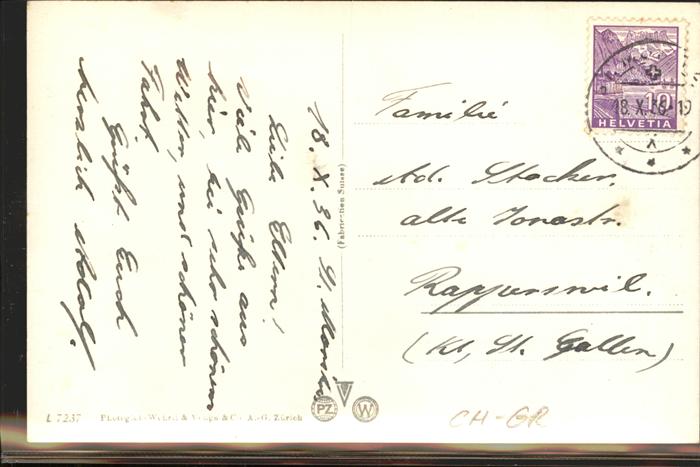 18. X. 36. St. Moritz
Liebe Eltern!
Viele Grüsse aus
hier, bei sehr schönem
Wetter, und schöner
Fahrt.
Grüsst Euch
herzlich Adolf.
Familie
Ad. Stocker,
alte Jonastr.
Rapperswil.
(Kt. St. Gallen)
10
HELVETIA
18.X.36-19
(Fabrication Suisse)
L 7237 Photoglob-Wehrli & Vouga & Co. A.-G. Zürich
PZ W
CH-GR